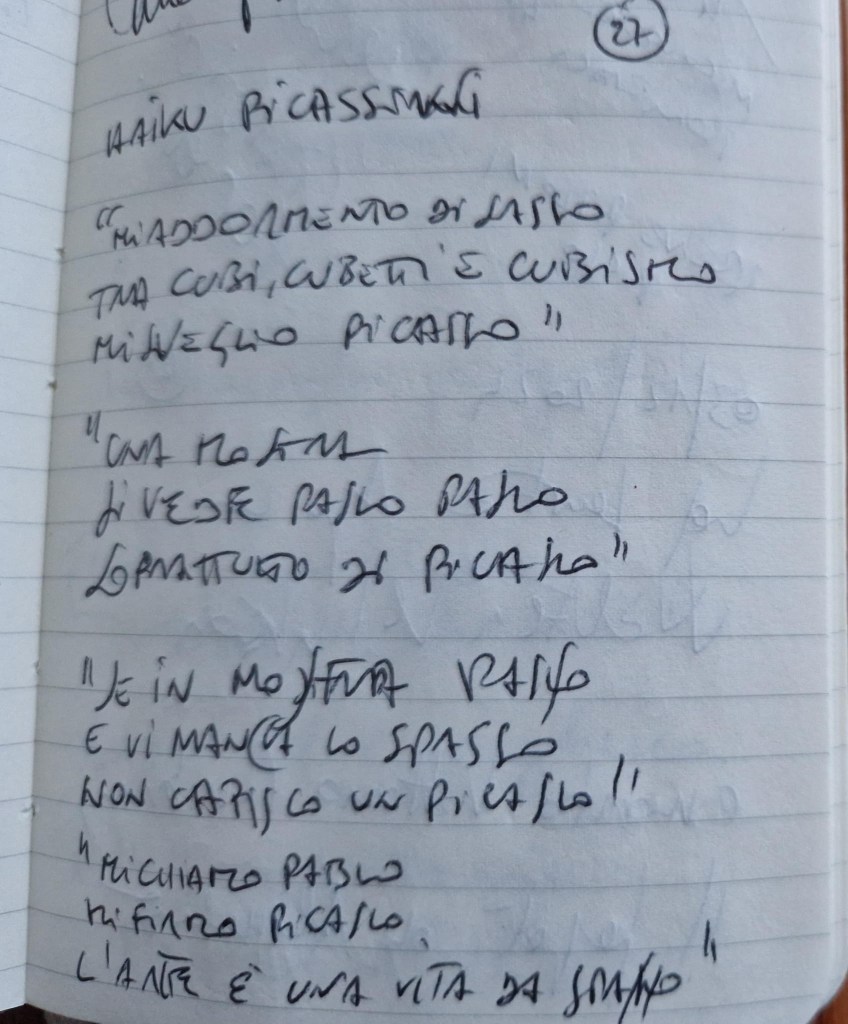 27
HAIKU PICASSIANI
"MI ADDORMENTO DI SASSO
TRA CUBI, CUBETTI E CUBISMO
MI SVEGLIO PICASSO"
"UNA MOSTRA
SI VEDE PASSO PASSO
SOPRATTUTTO DI PICASSO"
"SE IN MOSTRA PASSO
E VI MANCA LO SPASSO
NON CAPISCO UN PICASSO"
"MI CHIAMO PABLO
MI FIRMO PICASSO,
L'ARTE È UNA VITA DA SPASSO"